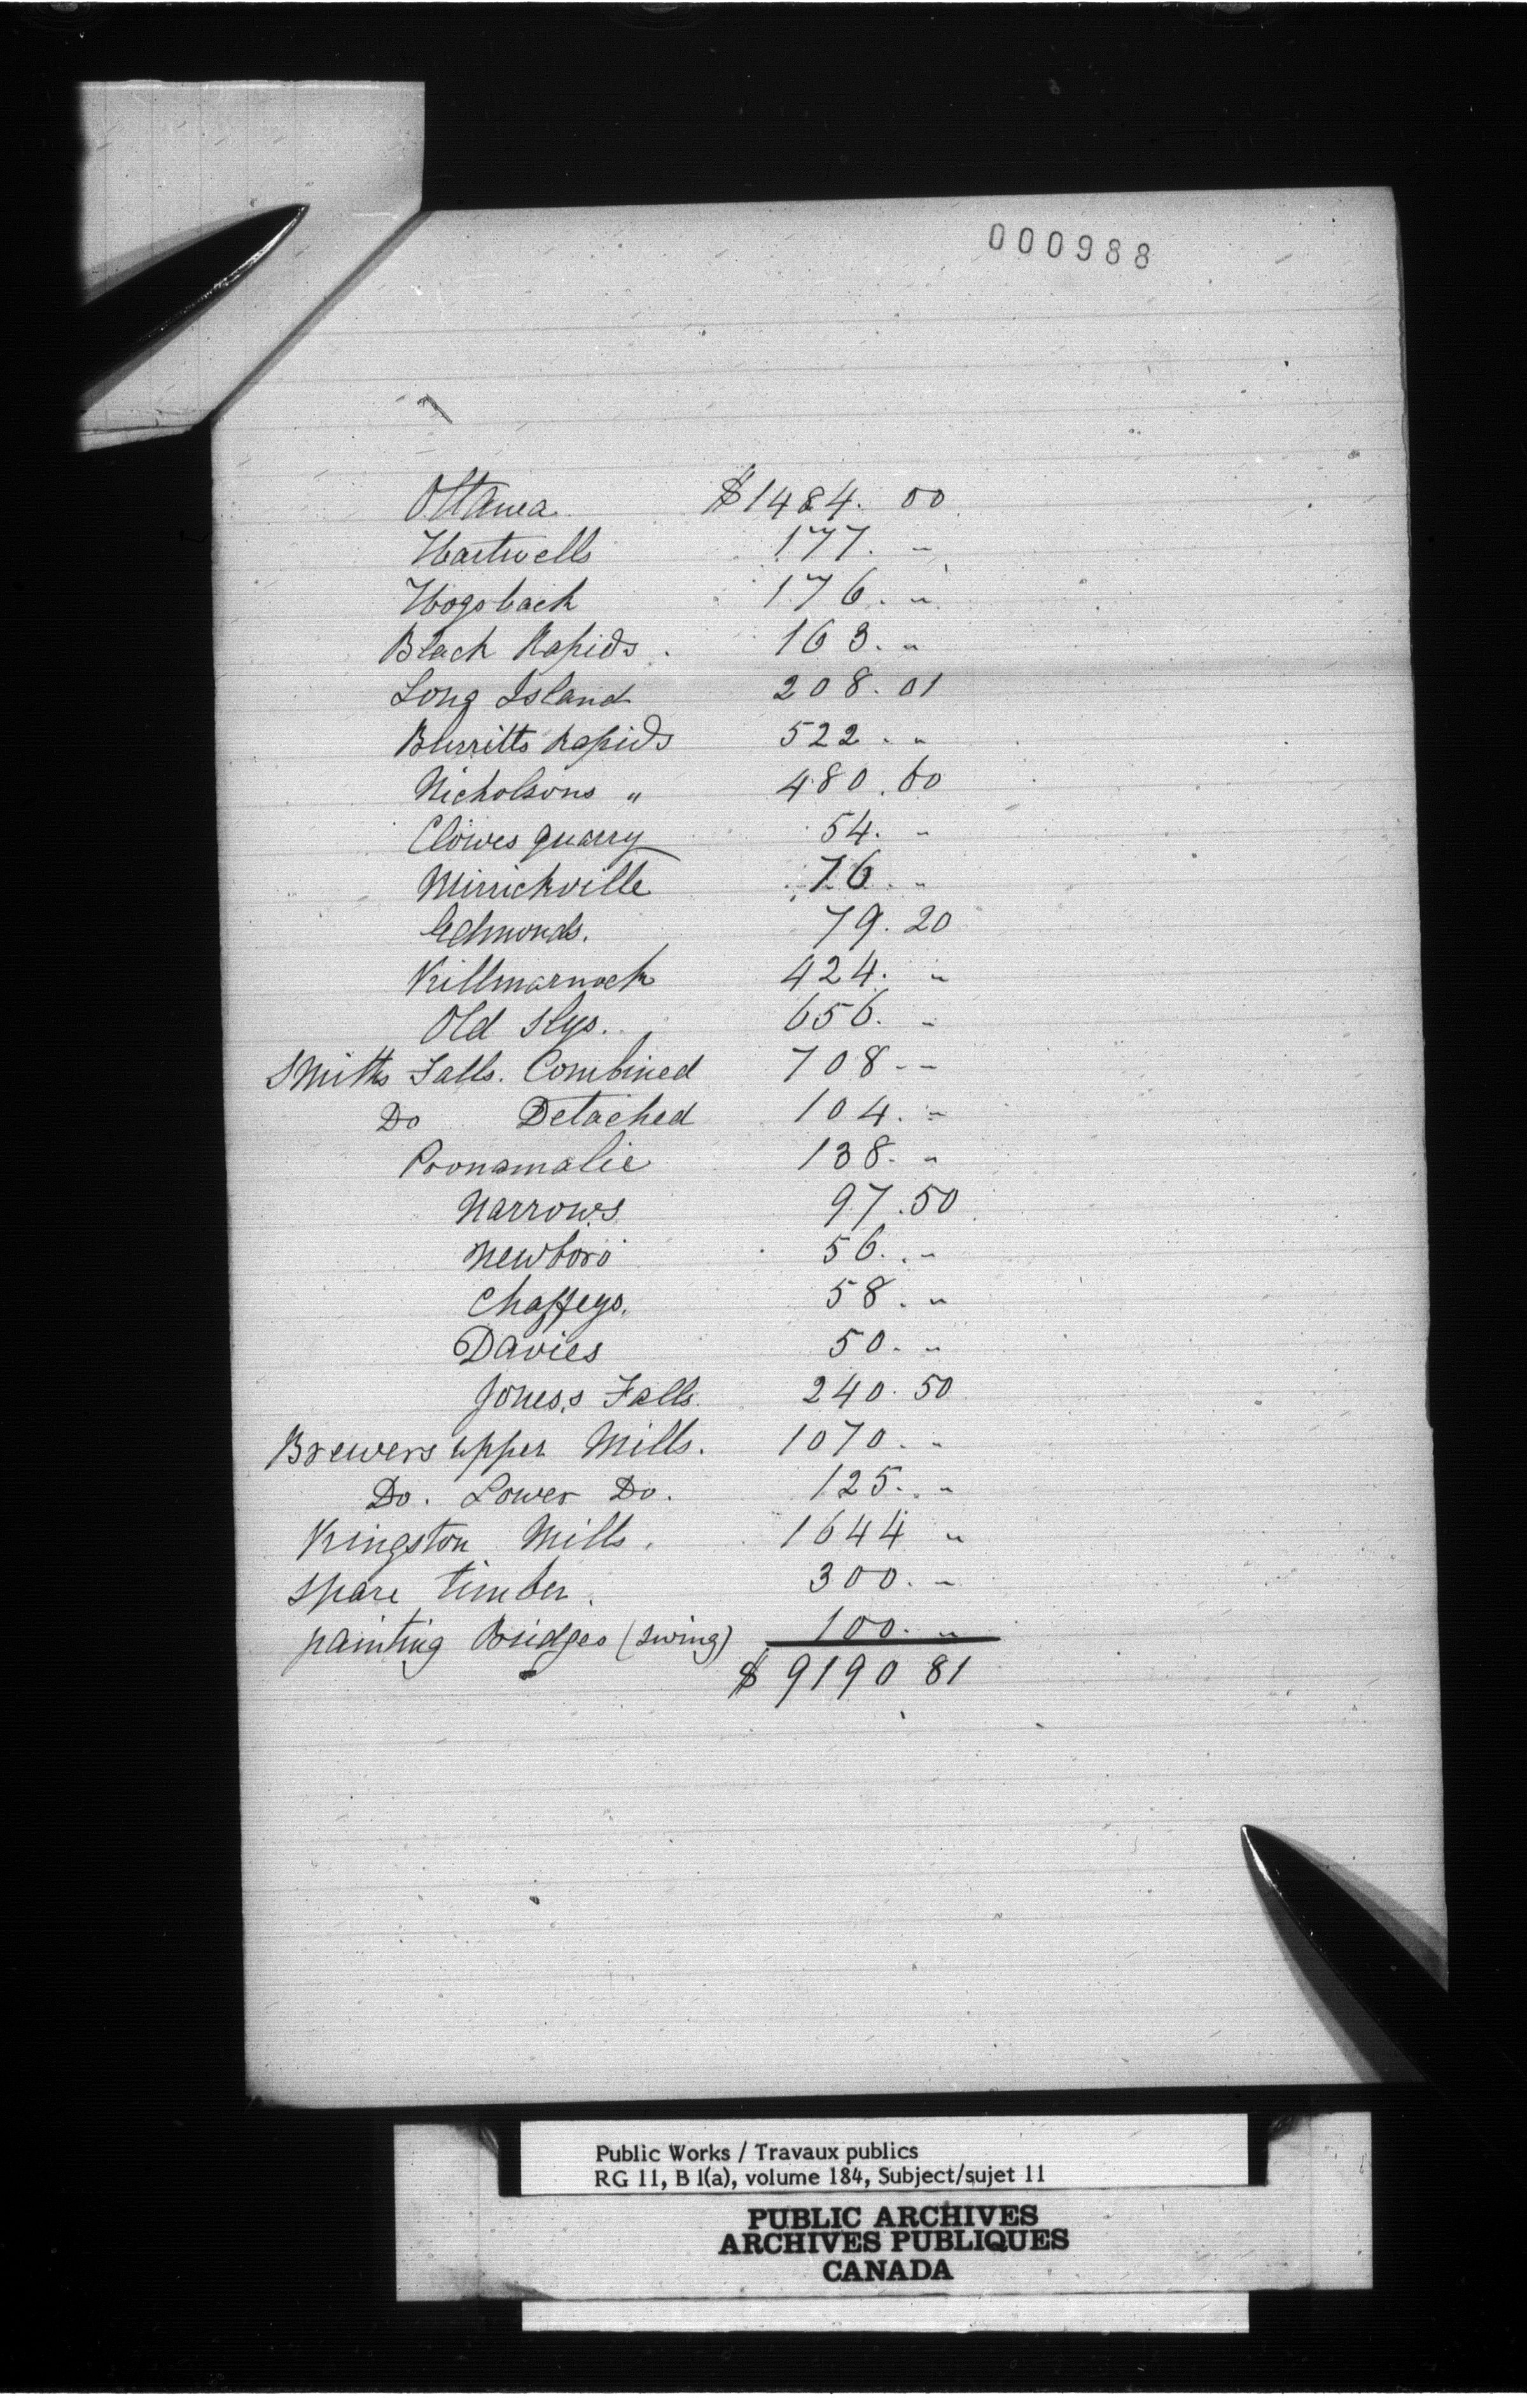 000988
Ottawa $1484. 00
Hartwells 177. "
Hogsback 176. "
Black Rapids. 163. "
Long Island 208. 01
Burritts Rapids 522. "
Nicholsons " 480. 60
Clowes quarry 54. "
Mirrickville 76. "
Edmonds. 79. 20
Killmarnock 424. "
Old Slys. 656. "
Smiths Falls. Combined 708 - "
Do Detached 104. "
Poonamalie 138. "
Narrows 97. 50
Newboro 56. "
Chaffeys. 58. "
Davies 50. "
Jones,s Falls 240. 50
Brewers upper Mills. 1070. "
Do. Lower Do. 125. "
Kingston Mills. 1644 "
spare timber. 300. "
painting Bridges (swing) 100. "
$ 9190 81
Public Works / Travaux publics
RG 11, B 1(a), volume 184, Subject/sujet 11
PUBLIC ARCHIVES
ARCHIVES PUBLIQUES
CANADA